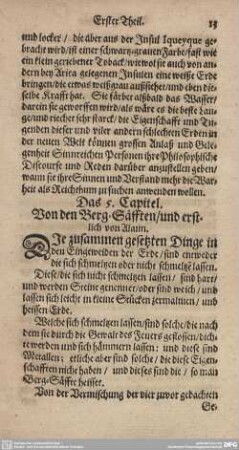 Erster Theil. 13
und locker / die aber aus der Insul Iqueyque ge-
bracht wird / ist einer schwartz-grauen Farbe / fast wie
ein klein geriebener Toback / wiewol sie auch von an-
dern bey Arica gelegenen Insulen eine weisse Erde
bringen / die etwas weißgrau außsiehet / und eben die-
selbe Krafft hat. Sie färbet alsbald das Wasser /
darein sie geworffen wird / als wäre es die beste Lau-
ge / und riechet sehr starck / die Eigenschafft und Tu-
genden dieser und viler andern schlechten Erden in
der neuen Welt können grossen Anlaß und Gele-
genheit Sinnreichen Personen ihre Philosophische
Discourse und Reden darüber anzustellen geben /
wann sie ihre Sinnen und Verstand mehr die War-
heit als Reichthum zu suchen anwenden wollen.
Das 5. Capitel.
Von den Berg-Säfften / und erst-
lich von Alaun.
DIe zusammen gesetzten Dinge in
den Eingeweiden der Erde / sind entweder
die sich schmeltzen oder nicht schmeltzē lassen.
Diese / die sich nicht schmeltzen lassen / sind hart /
und werden Steine genennet / oder sind weich / und
lassen sich leicht in kleine Stücken zermalmen / und
heissen Erde.
Welche sich schmeltzen lassen / sind solche / die nach
dem sie durch die Gewalt des Feuers geflossen / dich-
te werden und sich hämmern lassen; und diese sind
Metallen; etliche aber sind solche / die diese Eigen-
schafften nicht haben / und dieses sind die / so man
Berg-Säffte heisset.
Von der Vermischung der vier zuvor gedachten
Ge-